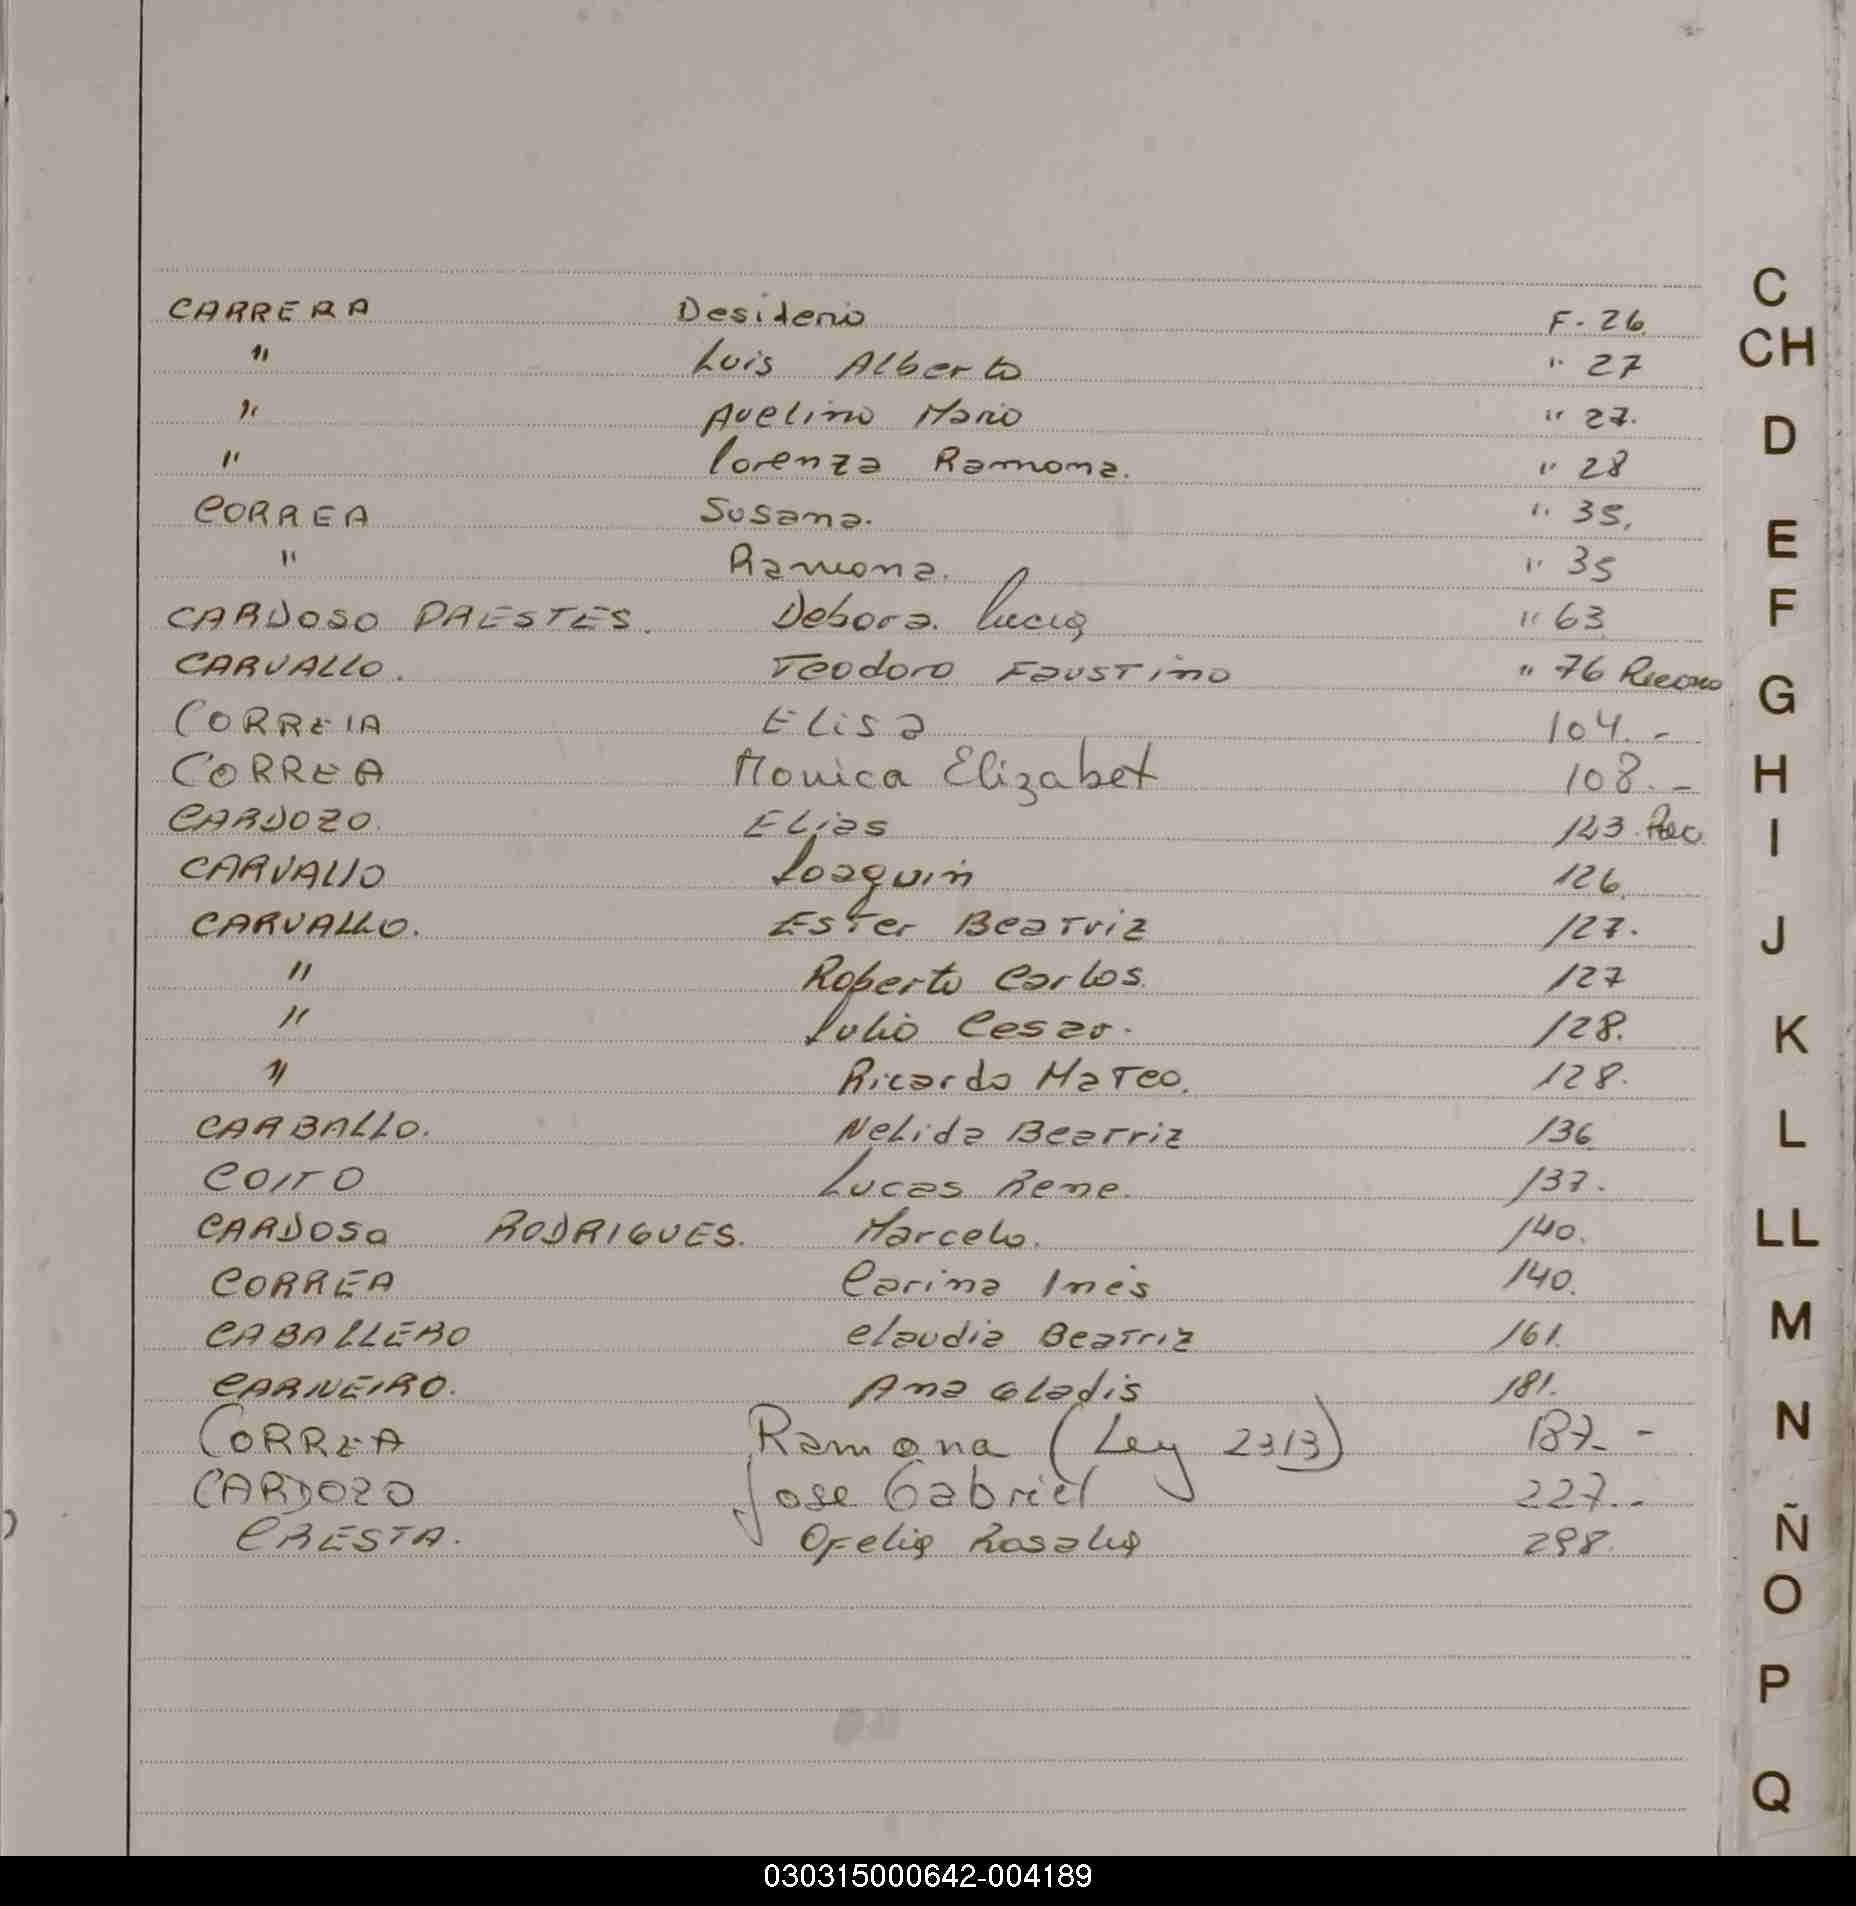 CARRERA Desiderio F. 26.
" Luis Alberto " 27
" Avelino Mario " 27.
" Lorenza Ramona. " 28
CORREA Susana. " 35.
" Ramona. " 35
CARDOSO PRESTES. Debora. Lucia " 63
CARVALLO. Teodoro Faustino " 76 Recono
CORREIA Elisa 104. -
CORREA Monica Elizabet 108. -
CARDOZO. Elias 123. Rec.
CARVALLO Joaquin 126.
CARVALLO. Ester Beatriz 127.
" Roberto Carlos. 127
" Julio Cesar. 128.
" Ricardo Mateo. 128.
CARBALLO. Nelida Beatriz 136
COITO Lucas Rene. 137.
CARDOSO RODRIGUES. Marcelo. 140.
CORREA Carina Inés 140.
CABALLERO Claudia Beatriz 161.
CARNEIRO. Ana Gladis 181.
CORREA Ramona (Ley 2313) 187. -
CARDOZO Jose Gabriel 227. -
CRESTA. Ofelia Rosalia 298.
C
CH
D
E
F
G
H
I
J
K
L
LL
M
N
Ñ
O
P
Q
030315000642-004189